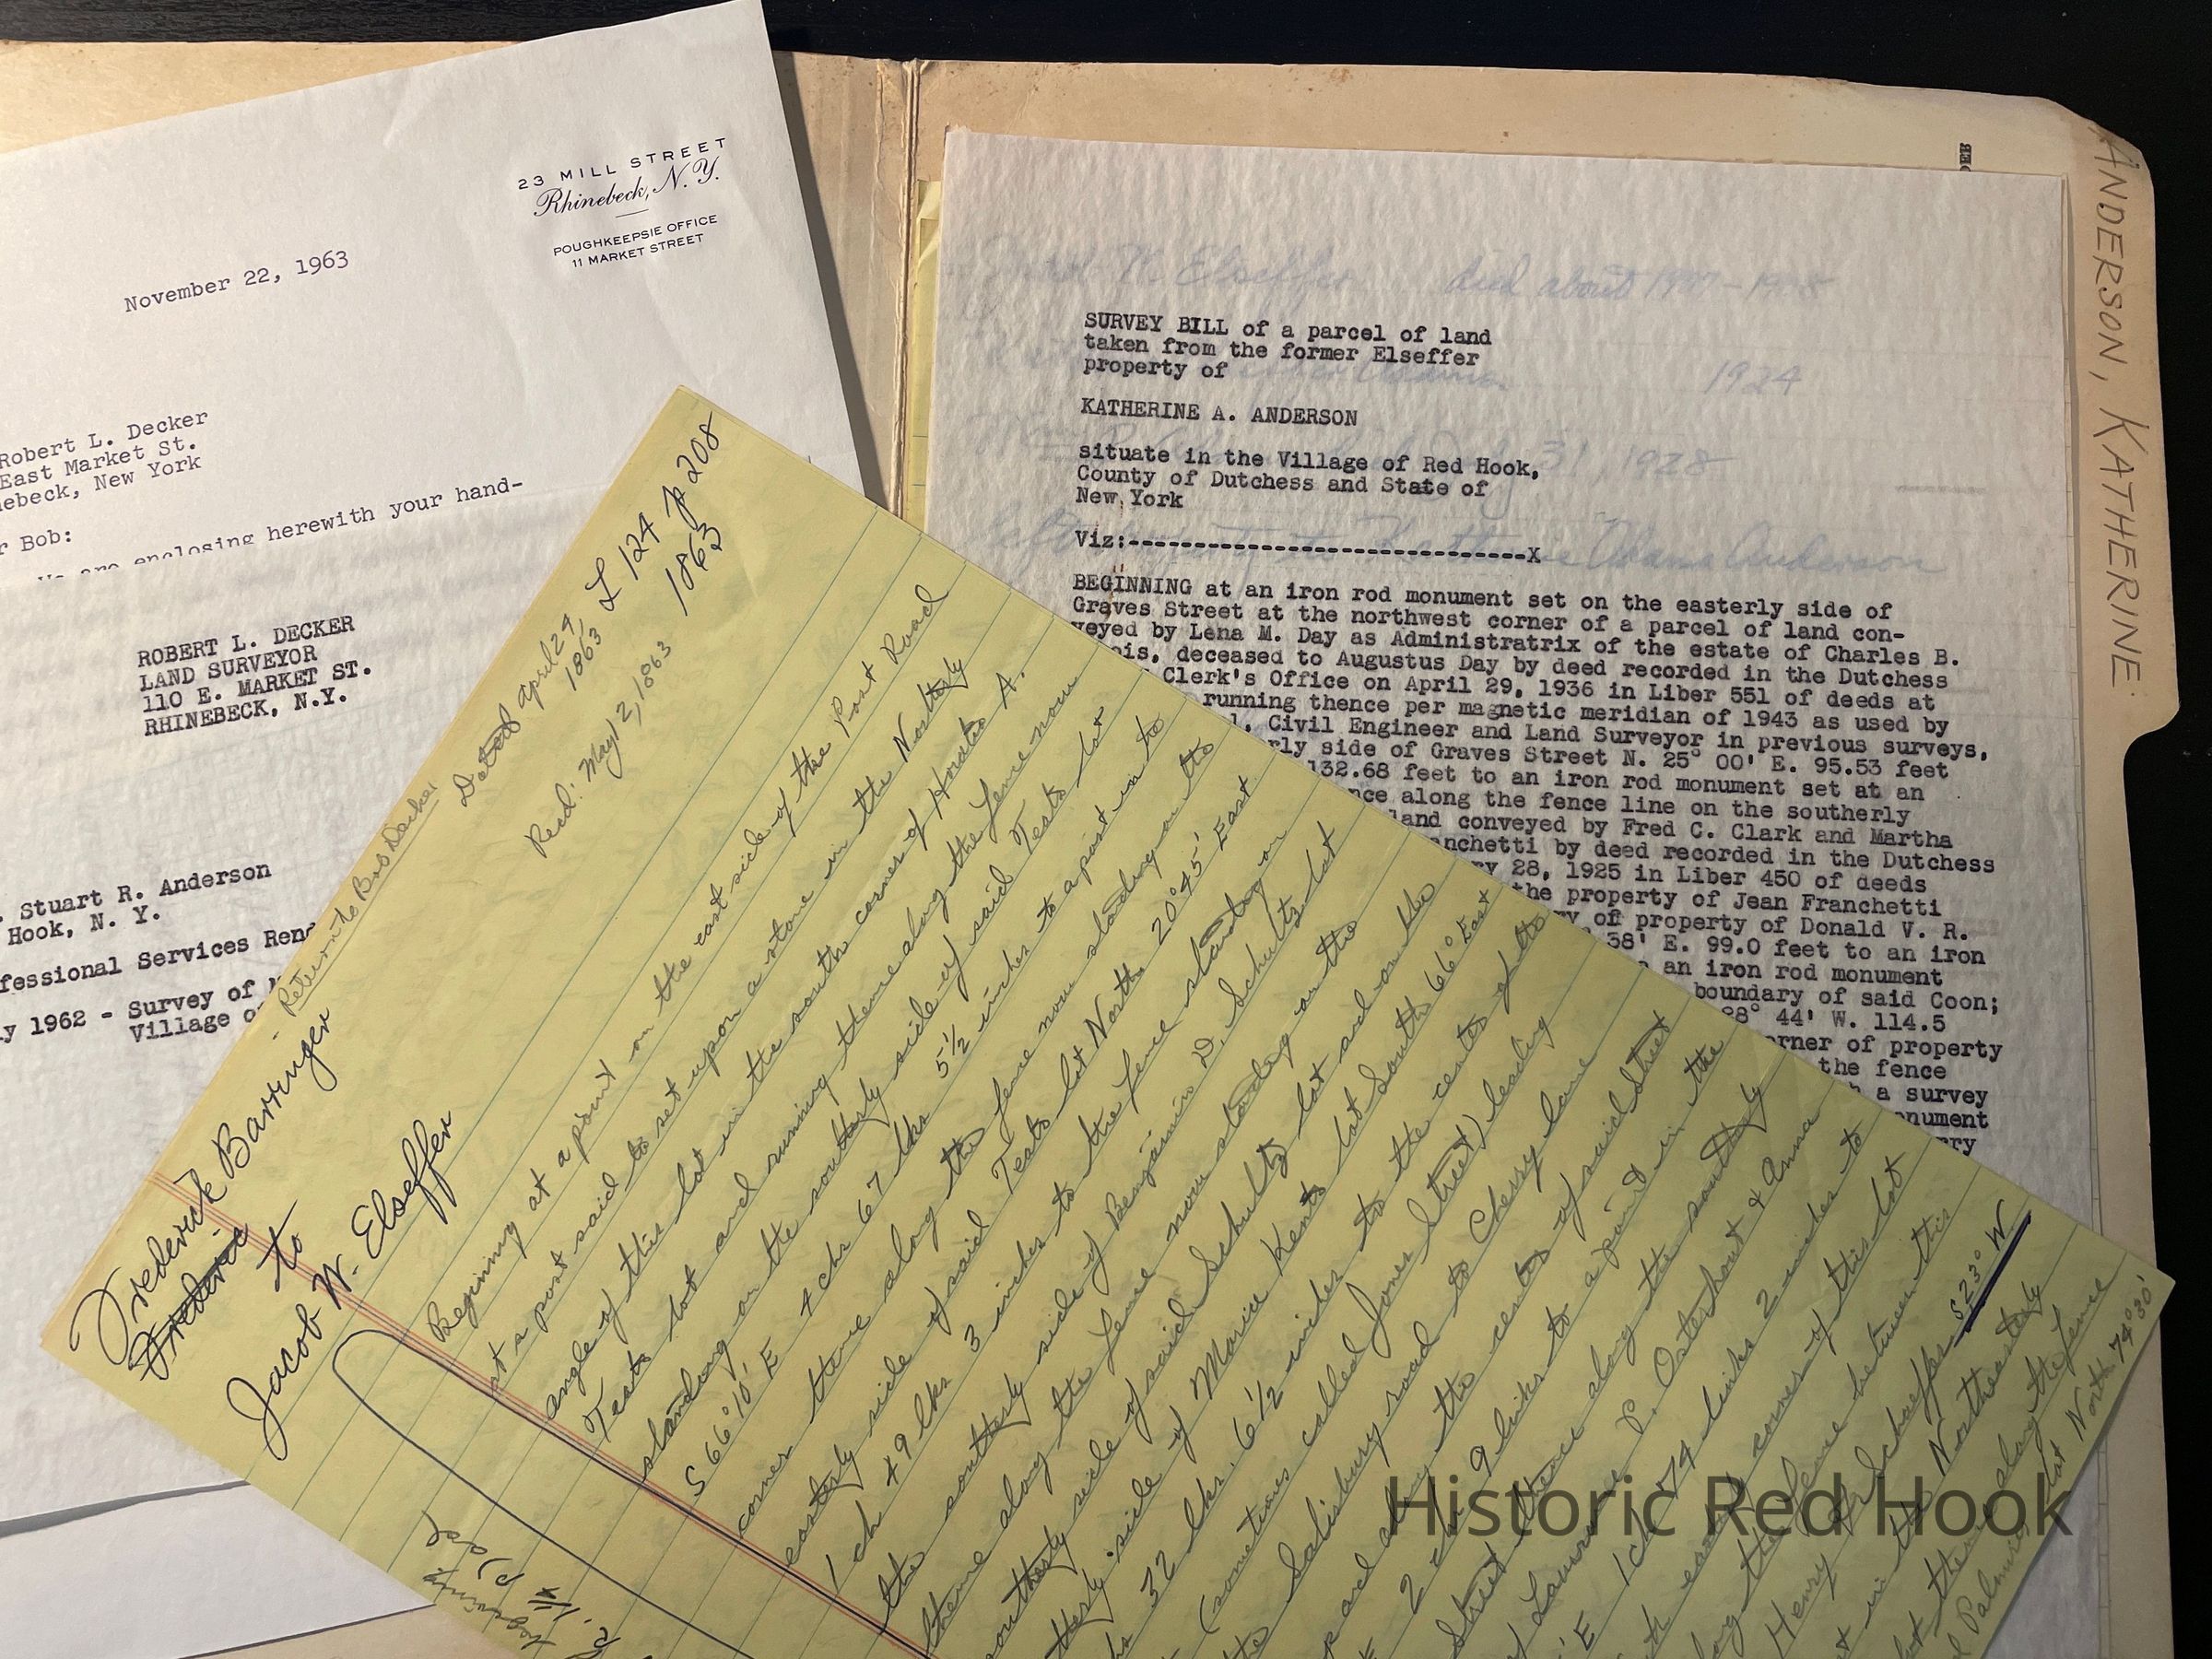 23 MILL STREET
Rhinebeck, N.Y.
POUGHKEEPSIE OFFICE
11 MARKET STREET
November 22, 1963
Robert L. Decker
East Market St.
nebeck, New York
r Bob:
We are enclosing herewith your hand-
ROBERT L. DECKER
LAND SURVEYOR
110 E. MARKET ST.
RHINEBECK, N.Y.
. Stuart R. Anderson
Hook, N. Y.
fessional Services Rend
y 1962 - Survey of
Village o
Return to Bob Decker
Dated April 24, L 124 p 208
1863 1863
Recd: May 12, 1863
Frederick Barringer
Frederic
to
Jacob W. Elseffer
Beginning at a point on the east side of the Post Road
at a post said to set upon a stone in the Northerly
angle of this lot in the south corner of
Teats lot and running thence along the fence now
standing on the southerly side of said Teats lot
S 66° 10' E 4 chs 67 lks 5 1/2 inches to a post in the
corner thence along the fence now standing on the
easterly side of said Teats lot North 20° 45' East
1 ch 49 lks 3 inches to the fence standing on
the southerly side of Benjamin D. Schultz lot
thence along the fence now standing on the
southerly side of said Schultz lot and on the
side of Kents lot South 66° East
32 lks. 6 1/2 inches to the center of the
(sometimes called Jones Street) leading
Salisbury road to Cherry lane
and along the center of said street
2 chs 9 links to a point in the
Street thence along the southerly
of Laurence P. Osterhout & Anna
E 1 ch 74 links 2 inches to
east corner of this lot
along the fence between this
Henry Schaeffer S 23° W
in the Northeasterly
along the fence
lot North 74° 30'
SURVEY BILL of a parcel of land
taken from the former Elseffer
property of
KATHERINE A. ANDERSON
situate in the Village of Red Hook,
County of Dutchess and State of
New York
Viz:------------------------------X
W. Elseffer died about
1924
31, 1928
Adams Anderson
BEGINNING at an iron rod monument set on the easterly side of
Graves Street at the northwest corner of a parcel of land con-
veyed by Lena M. Day as Administratrix of the estate of Charles B.
ois, deceased to Augustus Day by deed recorded in the Dutchess
Clerk's Office on April 29, 1936 in Liber 551 of deeds at
running thence per magnetic meridian of 1943 as used by
l, Civil Engineer and Land Surveyor in previous surveys,
rly side of Graves Street N. 25° 00' E. 95.53 feet
132.68 feet to an iron rod monument set at an
nce along the fence line on the southerly
land conveyed by Fred C. Clark and Martha
anchetti by deed recorded in the Dutchess
ry 28, 1925 in Liber 450 of deeds
the property of Jean Franchetti
ry of property of Donald V. R.
38' E. 99.0 feet to an iron
an iron rod monument
boundary of said Coon;
28° 44' W. 114.5
orner of property
the fence
a survey
onument
rry
ANDERSON, KATHERINE
Historic Red Hook